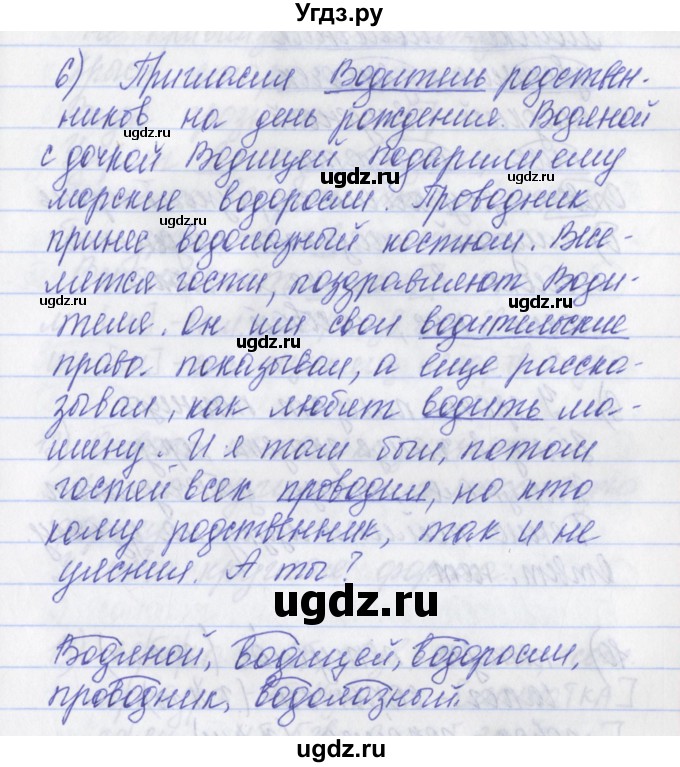 Угдз.ру
6) Пригласил Водитель родствен-
ников на день рождения. Водяной
с дочкой Водицей подарили ему
морские водоросли. Проводник
принес водолазный костюм. Весе-
лятся гости, поздравляют Води-
теля. Он им свои водительские
права показывал, а еще расска-
зывал, как любят водить ма-
шину. И я там был, потом
гостей всех проводил, но кто
кому родственник, так и не
уяснил. А ты?
Водяной, водицей, водоросли,
проводник, водолазный.
ugdz.ru
ugdz.ru
ugdz.ru
ugdz.ru
ugdz.ru
ugdz.ru
ugdz.ru
ugdz.ru
ugdz.ru